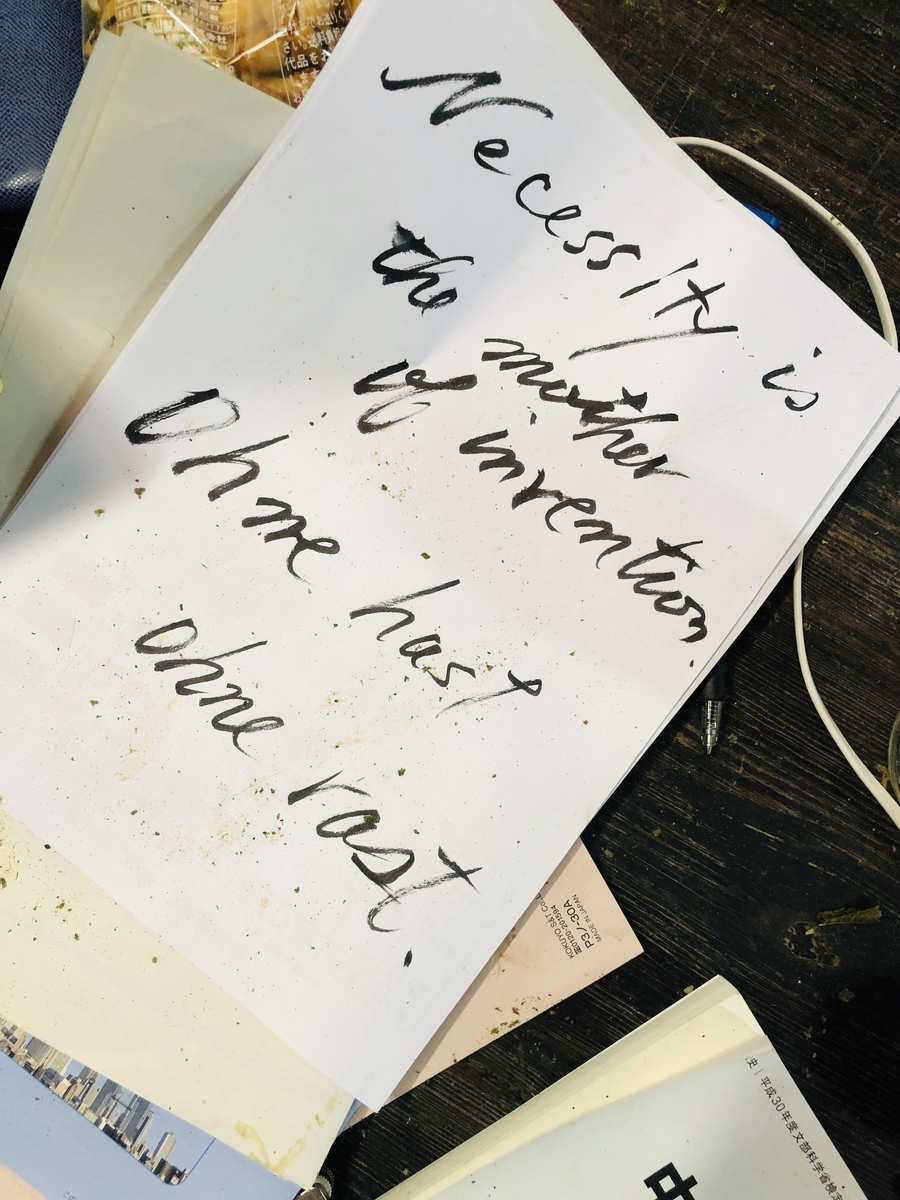 Necessity is
the mother
of invention.
Ohne hast
ohne rast.
KOKUYO S&T Co.
0120-201594
MADE IN JAPAN
史｜平成30年度文部科学省検
中
代品を